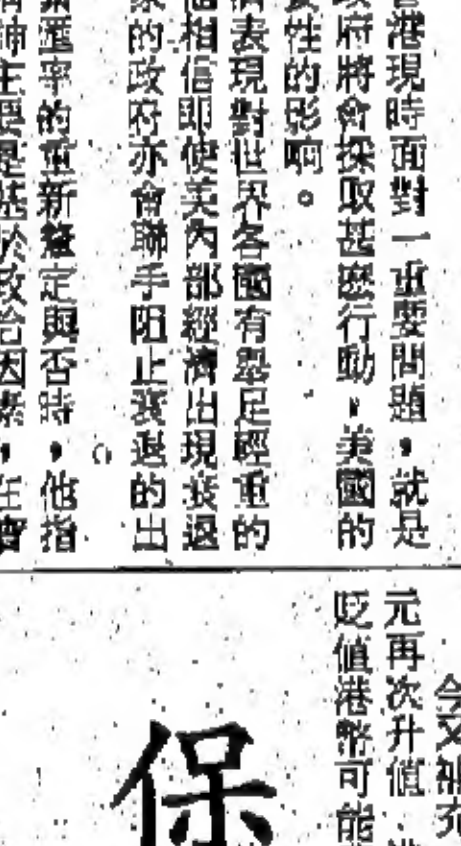 港現時面對一重要問題，就是
政府將會採取甚麼行動，美國的
性的影响。
表現對世界各國有舉足輕重的
相信即使美內部經濟出現衰退
的政府亦會聯手阻止衰退的出
匯率的重新釐定與否時，他指
主要是基於政治因素，在實
今又補充
元再次升值、
貶值港幣可能
保